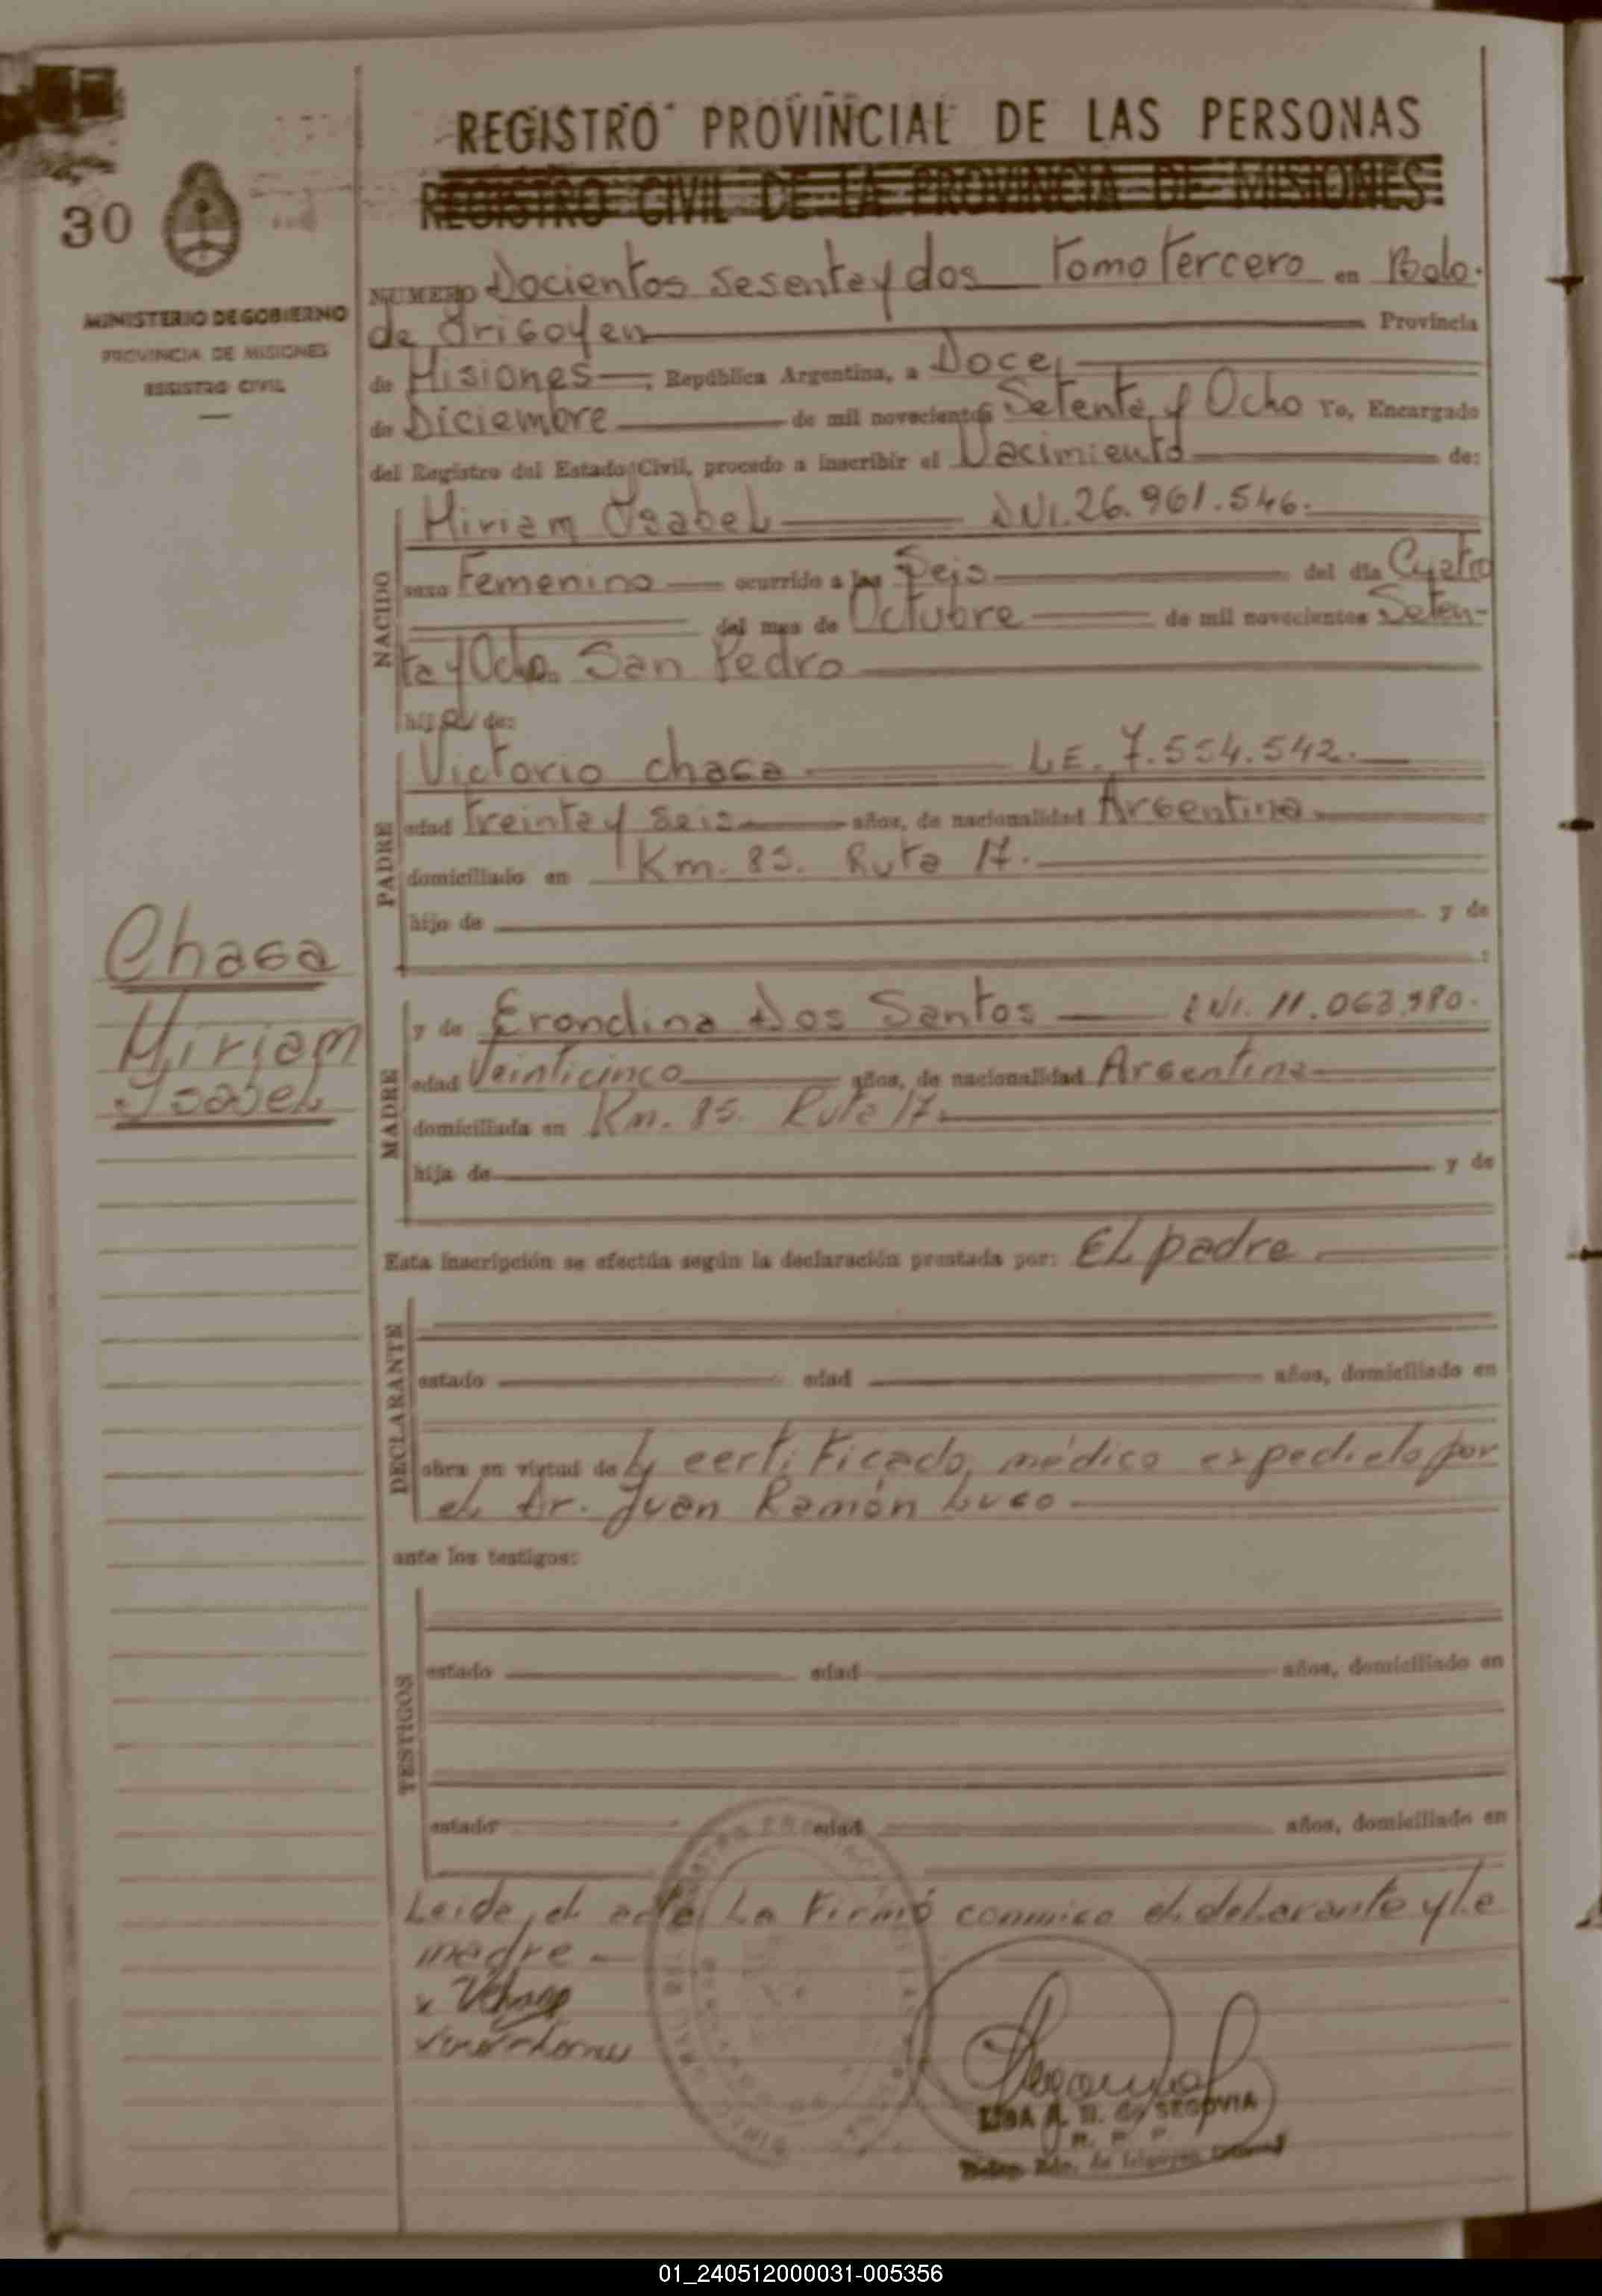 REGISTRO PROVINCIAL DE LAS PERSONAS
REGISTRO CIVIL DE LA PROVINCIA DE MISIONES
30
MINISTERIO DE GOBIERNO
PROVINCIA DE MISIONES
REGISTRO CIVIL
NUMERO Docientos Sesenta y dos Tomo Tercero en Bdo.
de Irigoyen Provincia
de Misiones, República Argentina, a Doce
de Diciembre de mil novecientos Setenta y Ocho Yo, Encargado
del Registro del Estado Civil, procedo a inscribir el Nacimiento de:
NACIDO
Miriam Isabel DNI. 26.961.546.
sexo Femenino ocurrido a las Seis del día Cuatro
del mes de Octubre de mil novecientos Seten-
ta y Ocho. San Pedro
hija de:
PADRE
Victorio Chaga L.E. 7.554.542.
edad Treinta y Seis años, de nacionalidad Argentina
domiciliado en Km. 85. Ruta 17.
hijo de y de
:
Chaga
Miriam
Isabel
MADRE
y de Erondina Dos Santos DNI. 11.063.980.
edad Veinticinco años, de nacionalidad Argentina
domiciliada en Km. 85. Ruta 17.
hija de y de
Esta inscripción se efectúa según la declaración prestada por: El padre
DECLARANTE
estado edad años, domiciliado en
obra en virtud de certificado médico expedido por
el Dr. Juan Ramón Lugo
ante los testigos:
TESTIGOS
estado edad años, domiciliado en
estado edad años, domiciliado en
Leida el acta La Firmó conmigo el declarante y la
madre
LISA A. B. de SEGOVIA
R. P. P.
Bdo. de Irigoyen
01_240512000031-005356